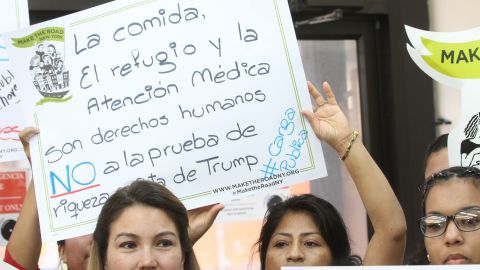 MAKE THE ROAD
NEW YORK
La comida,
El refugio y la
Atención Médica
son derechos humanos
NO a la prueba de
riqueza de Trump
#Carga
Pública
WWW.MAKETHEROADNY.ORG
@MaketheRoadNY
MAKE